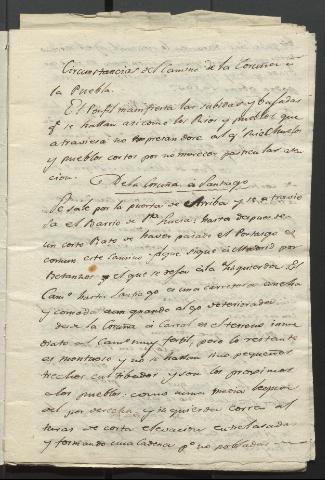 Circunstancias del Camino de la Coruña à
la Puebla.
El Perfil manifiesta las subidas y bajadas
qe. se hallan asi como los Rios y pueblos que
atraviesa no expresandose al qe. Riachuelos
y pueblos cortos por no merecer particular aten
cion.
De la Coruña a Santiago
Se sale por la puerta de Arriba y se atravie
sa el Barrio de Sta. Lucia; hasta despues de
un corto Rato de haver pasado el Portazgo es
comun este camino al que sigue à Madrid por
Betanzos y el que se dexa á la Izquierda. El
Camo. hasta Santiago es una carretera ancha
y comoda aun quando algo deteriorada
desde la Coruña à Carral es el terreno inme
diato al Camo. muy fertil, pero lo restante
es montuoso y no se hallan sino pequeños
trechos cultibados y son los proximos
a los pueblos: como una media legua
del por derecha e izquierda corren al
turas de corta elevacion entrelasadas
y formando una cadena pr. no pobladas